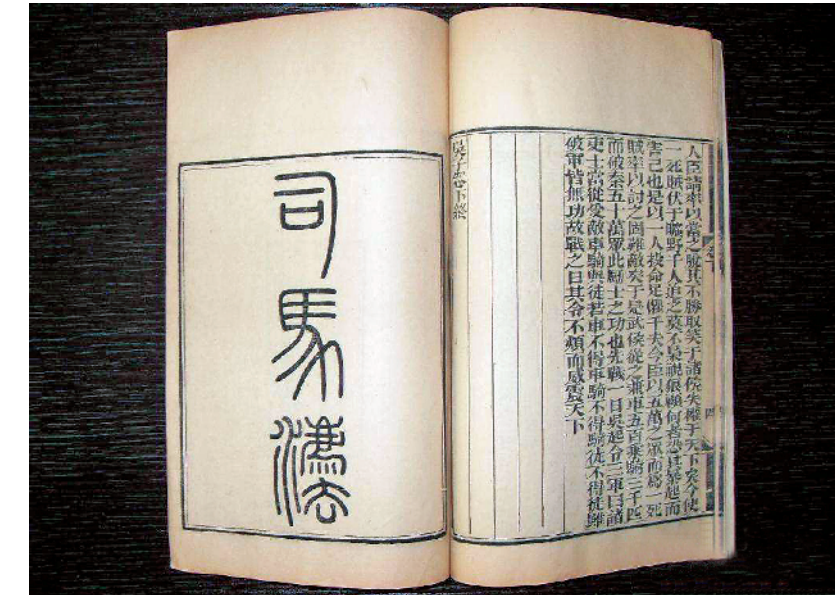 人臣請率以當之脫其不勝取笑于諸侯失權于天下矣今使
一死賊伏于曠野千人追之莫不梟視狼顧何者恐其暴起而
害己也是以一人投命足懼千夫今臣以五萬之眾而爲一死
賊率以討之固難敵矣于是武侯從之兼車五百乘騎三千匹
而破秦五十萬眾此勵士之功也先戰一日吳起令三軍曰諸
吏士當從受敵車騎與徒若車不得車騎不得騎徒不得徒雖
破軍皆無功故戰之日其令不煩而威震天下
吳子卷下終
司馬法